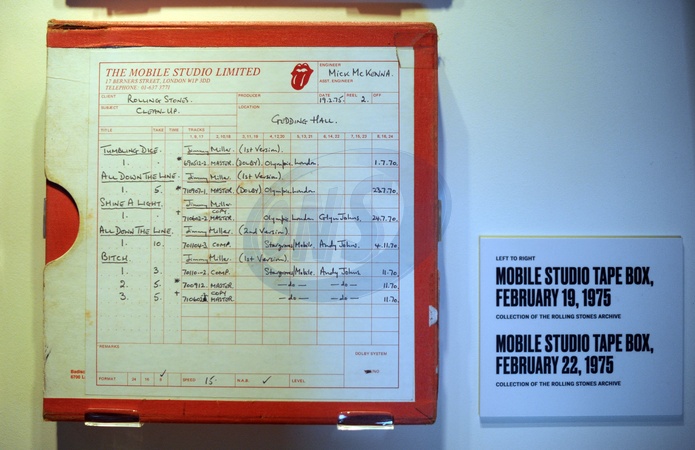 THE MOBILE STUDIO LIMITED
17 BERNERS STREET, LONDON W1P 3DD
TELEPHONE: 01-637 3771
ENGINEER
Mick McKenna.
ASST. ENGINEER
CLIENT Rolling Stones.
PRODUCER
DATE 19.2.75. REEL 2. OFF
SUBJECT Clean-up.
LOCATION
Godding Hall.
TITLE TAKE TIME TRACKS
Tumbling Dice. Jimmy Miller. (1st Version).
1. - MASTER. (DOLBY). Olympic London 1.7.70.
All Down The Line. Jimmy Miller. (1st Version).
1. 5. MASTER. (DOLBY) Olympic London 23.7.70.
Shine A Light. Jimmy Miller.
1. - COPY MASTER. Olympic London Glyn Johns. 24.7.70.
All Down The Line. Jimmy Miller. (2nd Version).
1. 10. COMP. Stargroves/Mobile. Andy Johns. 4.11.70.
Bitch. Jimmy Miller. (1st Version).
1. 3. COMP. Stargroves/Mobile. Andy Johns. 11.70.
2. 5. 700912. MASTER. — do — — do — 11.70.
3. 5. COPY MASTER — do — — do — 11.70.
REMARKS
DOLBY SYSTEM
FORMAT 24 16 8 SPEED 15. N.A.B. ✓ LEVEL
GMS
LEFT TO RIGHT
MOBILE STUDIO TAPE BOX,
FEBRUARY 19, 1975
COLLECTION OF THE ROLLING STONES ARCHIVE
MOBILE STUDIO TAPE BOX,
FEBRUARY 22, 1975
COLLECTION OF THE ROLLING STONES ARCHIVE